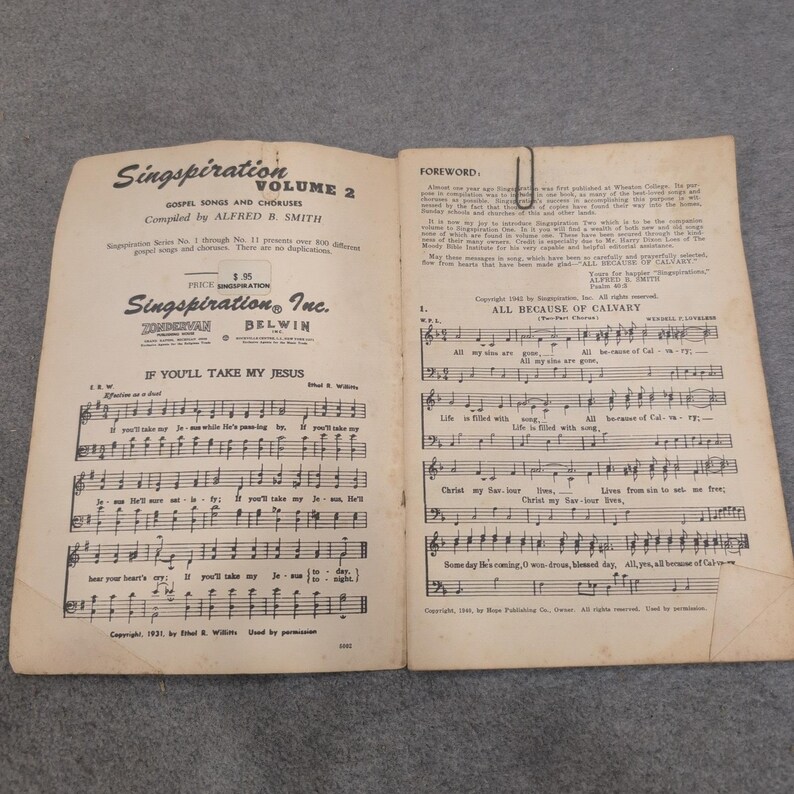 Singspiration
VOLUME 2
GOSPEL SONGS AND CHORUSES
Compiled by ALFRED B. SMITH
Singspiration Series No. 1 through No. 11 presents over 800 different
gospel songs and choruses. There are no duplications.
$ .95
PRICE SINGSPIRATION
Singspiration® Inc.
ZONDERVAN BELWIN
PUBLISHING HOUSE INC.
GRAND RAPIDS, MICHIGAN ROCKVILLE CENTRE, L.I., NEW YORK
Exclusive Agents for the Religious Trade Exclusive Agents for the Music Trade
IF YOU'LL TAKE MY JESUS
E. R. W. Ethel R. Willitts
Effective as a duet
If you'll take my Je - sus while He's pass-ing by, If you'll take my
Je - sus He'll sure sat - is - fy; If you'll take my Je - sus, He'll
hear your heart's cry; If you'll take my Je - sus { to - day. }
{ to - night. }
Copyright, 1931, by Ethel R. Willitts Used by permission
5092
FOREWORD:
Almost one year ago Singspiration was first published at Wheaton College. Its pur-
pose in compilation was to include in one book, as many of the best-loved songs and
choruses as possible. Singspiration's success in accomplishing this purpose is wit-
nessed by the fact that thousands of copies have found their way into the homes,
Sunday schools and churches of this and other lands.
It is now my joy to introduce Singspiration Two which is to be the companion
volume to Singspiration One. In it you will find a wealth of both new and old songs
none of which are found in volume one. These have been secured through the kind-
ness of their many owners. Credit is especially due to Mr. Harry Dixon Loes of The
Moody Bible Institute for his very capable and helpful editorial assistance.
May these messages in song, which have been so carefully and prayerfully selected,
flow from hearts that have been made glad—"ALL BECAUSE OF CALVARY."
Yours for happier "Singspirations,"
ALFRED B. SMITH
Psalm 40:3
Copyright 1942 by Singspiration, Inc. All rights reserved.
1. ALL BECAUSE OF CALVARY
W. P. L. (Two-Part Chorus) WENDELL P. LOVELESS
All my sins are gone, All be-cause of Cal - va - ry;
All my sins are gone,
Life is filled with song, All be-cause of Cal - va - ry;
Life is filled with song,
Christ my Sav - iour lives, Lives from sin to set me free;
Christ my Sav - iour lives,
Some day He's coming, O won - drous, blessed day, All, yes, all because of Cal-v
Copyright, 1940, by Hope Publishing Co., Owner. All rights reserved. Used by permission.